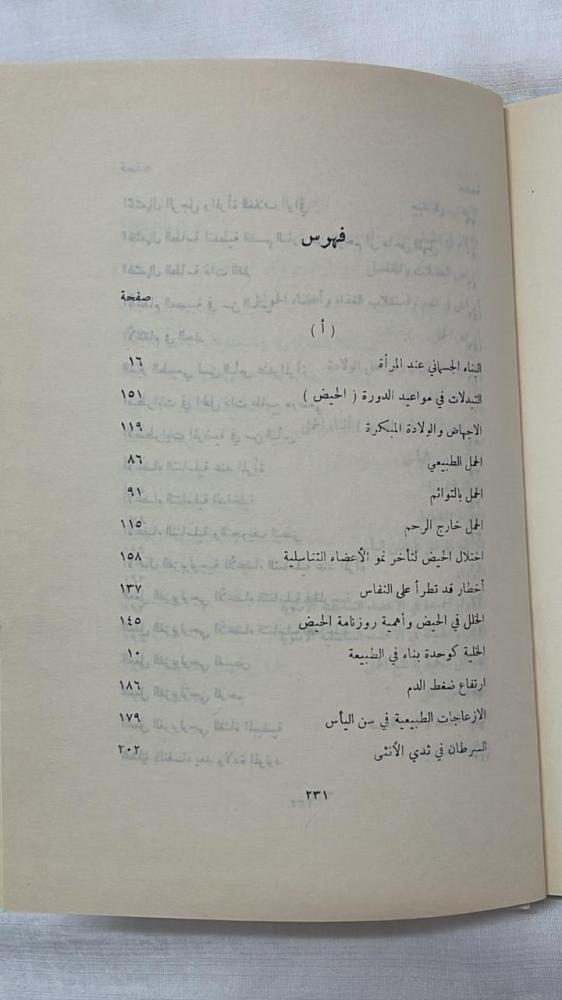 فهرس
صفحة
( أ )
البناء الجسماني عند المرأة ١٦
التبدلات في مواعيد الدورة ( الحيض ) ١٥١
الاجهاض والولادة المبكرة ١١٩
الحمل الطبيعي ٨٦
الحمل بالتوائم ٩١
الحمل خارج الرحم ١١٥
اختلال الحيض لتأخر نمو الأعضاء التناسلية ١٥٨
أخطار قد تطرأ على النفاس ١٣٧
الخلل في الحيض وأهمية روزنامة الحيض ١٤٥
الخلية كوحدة بناء في الطبيعة ١٠
ارتفاع ضغط الدم ١٨٦
الازعاجات الطبيعية في سن اليأس ١٧٩
السرطان في ثدي الأنثى ٢٠٢
٢٣١